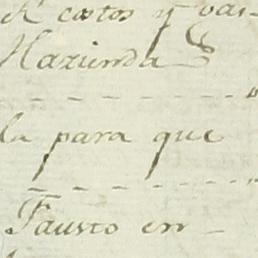 costos y vas-
Hazienda
la para que
Fausto en